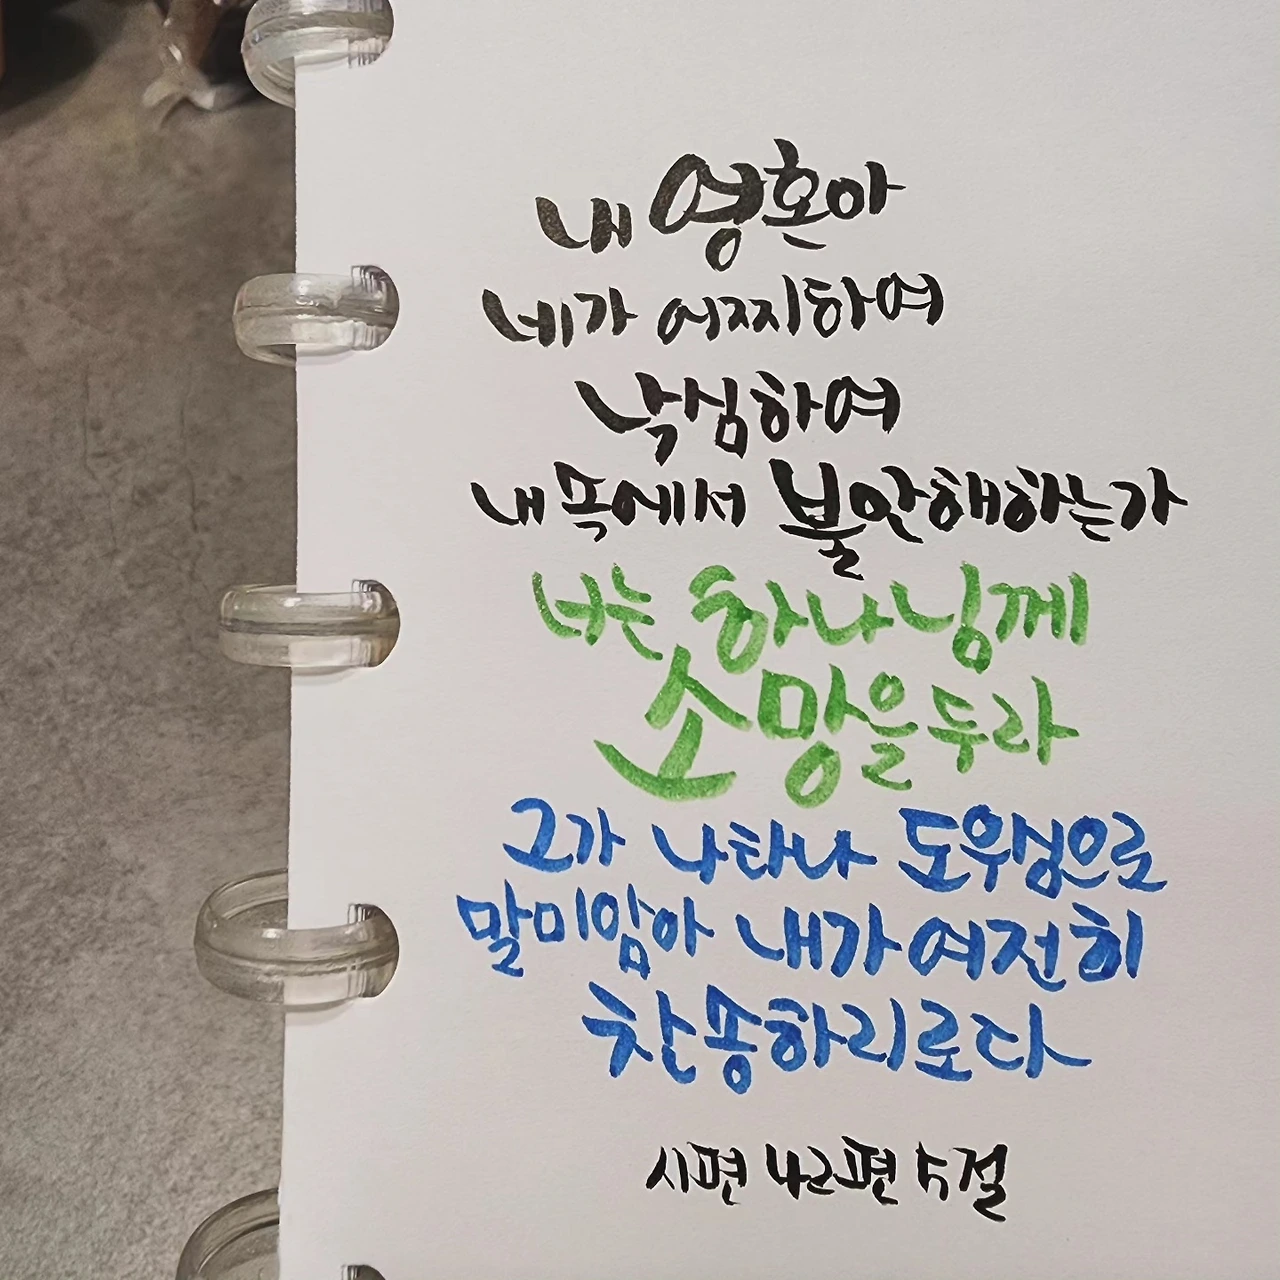 내 영혼아
네가 어찌하여
낙심하여
내 속에서 불안해하는가
너는 하나님께
소망을 두라
그가 나타나 도우심으로
말미암아 내가 여전히
찬송하리로다
시편 42편 5절